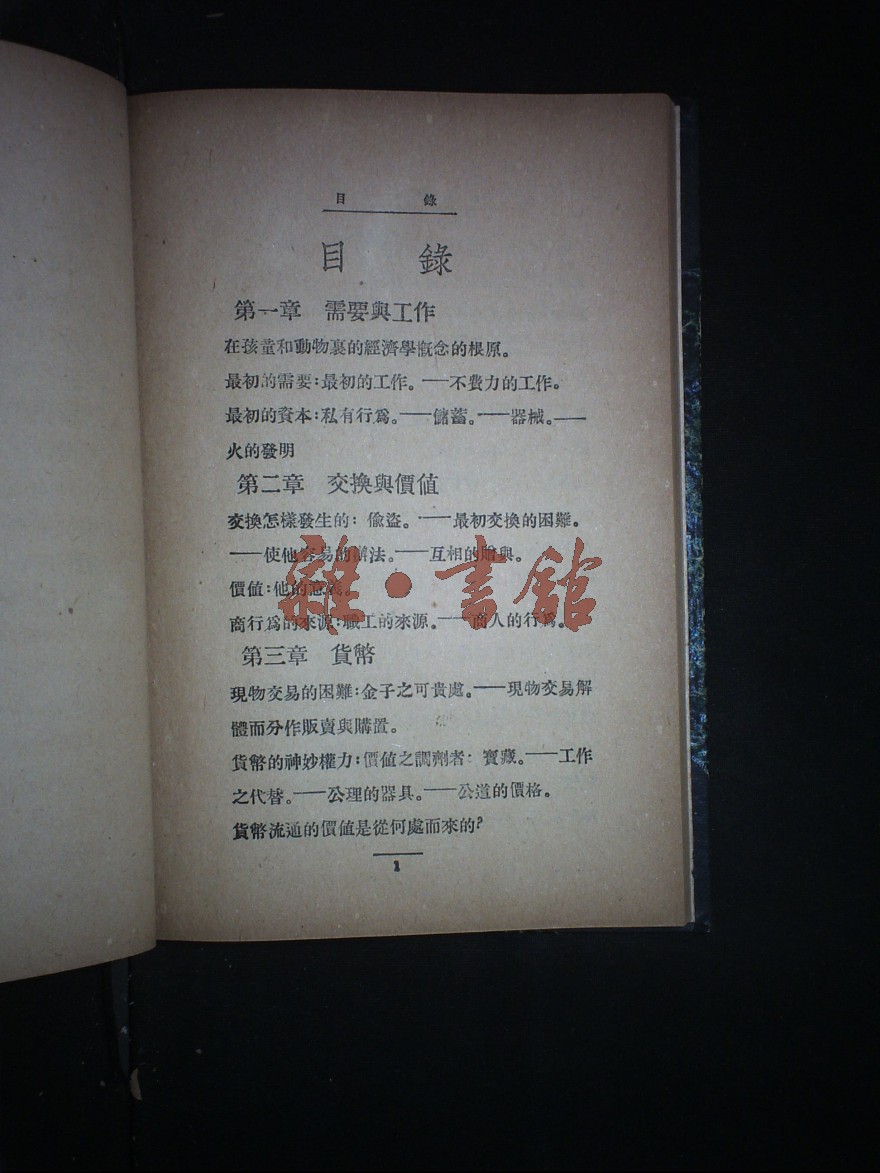 目 錄
目 錄
第一章 需要與工作
在孩童和動物裏的經濟學概念的根原。
最初的需要:最初的工作。——不費力的工作。
最初的資本:私有行爲。——儲蓄。——器械。——
火的發明
第二章 交換與價値
交換怎樣發生的: 偸盜。——最初交換的困難。
——使他容易的辦法。——互相的贈與。
價値:他的意義。
商行爲的來源:職工的來源。——商人的行爲。
雜·書館
第三章 貨幣
現物交易的困難:金子之可貴處。——現物交易解
體而分作販賣與購置。
貨幣的神妙權力:價値之調劑者: 寶藏。——工作
之代替。——公理的器具。——公道的價格。
貨幣流通的價値是從何處而來的?
1